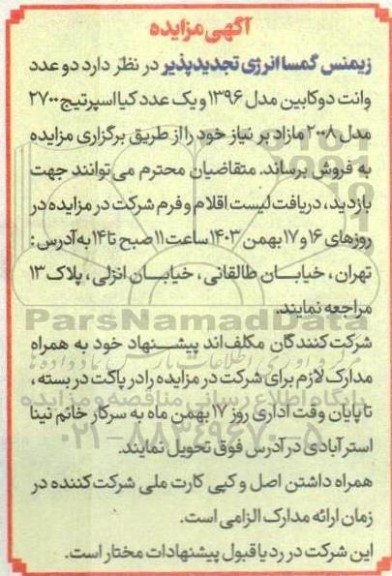 آگهی مزایده
زیمنس گمسا انرژی تجدیدپذیر در نظر دارد دو عدد
وانت دوکابین مدل ۱۳۹۶ و یک عدد کیا اسپرتیج ۲۷۰۰
مدل ۲۰۰۸ مازاد بر نیاز خود را از طریق برگزاری مزایده
به فروش برساند. متقاضیان محترم می توانند جهت
بازدید، دریافت لیست اقلام و فرم شرکت در مزایده در
روزهای ۱۶ و ۱۷ بهمن ۱۴۰۳ ساعت ۱۱ صبح تا ۱۴ به آدرس :
تهران ، خیابان طالقانی ، خیابان انزلی ، پلاک ۱۳
مراجعه نمایند.
ParsNamadData
شرکت کنندگان مکلف اند پیشنهاد خود به همراه
مدارک لازم برای شرکت در مزایده را در پاکت در بسته ،
پایگاه اطلاع رسانی مناقصه و مزایده
تا پایان وقت اداری روز ۱۷ بهمن ماه به سرکار خانم نینا
۰۲۱-۸۸۳۴۹۶۷۰-۵
استرآبادی در آدرس فوق تحویل نمایند.
همراه داشتن اصل و کپی کارت ملی شرکت کننده در
زمان ارائه مدارک الزامی است.
این شرکت در رد یا قبول پیشنهادات مختار است.